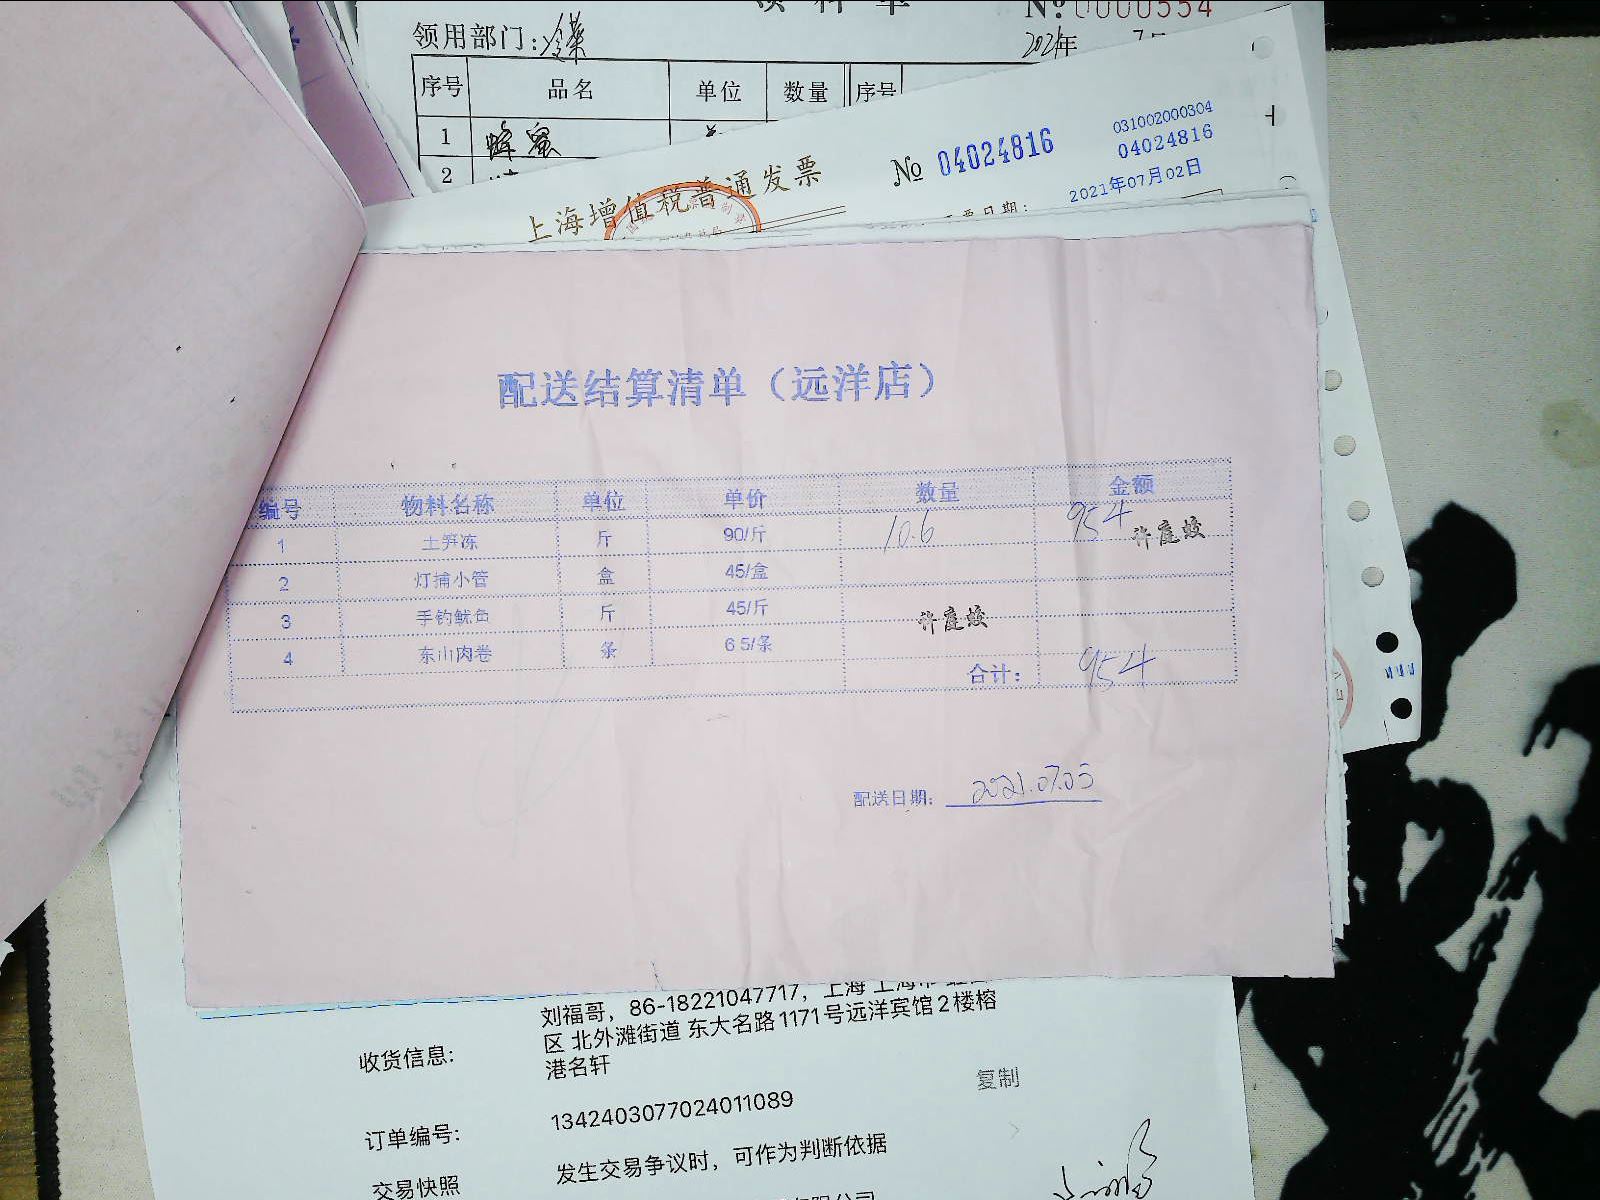 领料单 №0000554
领用部门:冷菜 2021年 7月
序号 品名 单位 数量 序号
1 蜂蜜
2
上海增值税普通发票 № 04024816
031002000304
04024816
开票日期: 2021年07月02日
配送结算清单（远洋店）
编号 物料名称 单位 单价 数量 金额
1 土笋冻 斤 90/斤 10.6 954 许庭蛟
2 灯捕小管 盒 45/盒
3 手钓鱿鱼 斤 45/斤 许庭蛟
4 东山肉卷 条 6.5/条
合计： 954
配送日期: 2021.07.05
刘福哥，86-18221047717，上海 上海市
收货信息: 区 北外滩街道 东大名路1171号远洋宾馆2楼榕
港名轩
复制
订单编号: 1342403077024011089
交易快照 发生交易争议时，可作为判断依据